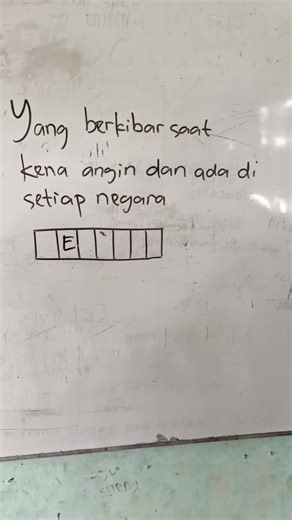 Yang berkibar saat
kena angin dan ada di
setiap negara
E